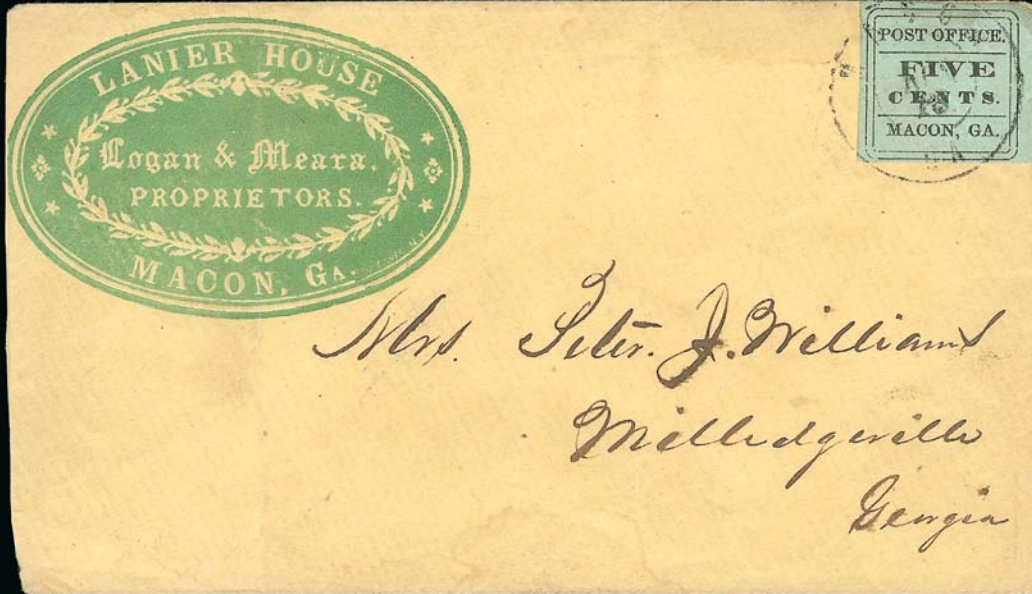 LANIER HOUSE
Logan & Meara.
PROPRIETORS.
MACON, GA.
POST OFFICE.
FIVE
CENTS.
MACON, GA.
Mrs. Peter. J. Williams
Milledgeville
Georgia